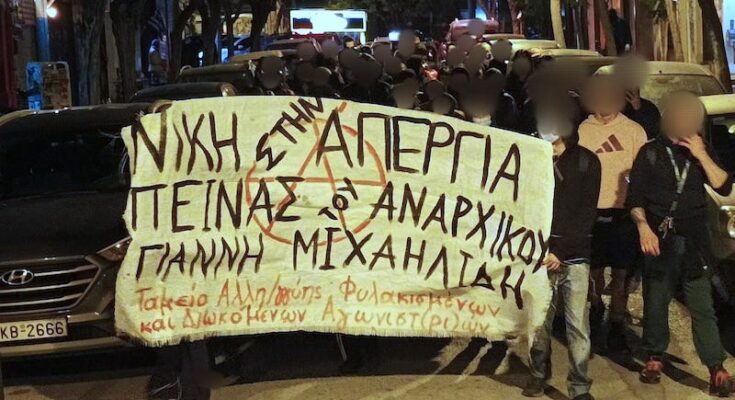 ΝΙΚΗ ΣΤΗΝ ΑΠΕΡΓΙΑ
ΠΕΙΝΑΣ ΤΟΥ ΑΝΑΡΧΙΚΟΥ
ΓΙΑΝΝΗ ΜΙΧΑΗΛΙΔΗ
Ταμείο Αλλη/γγύης Φυλακισμένων
και Διωκόμενων Αγωνιστ(ρι)ών
ΚΒ-2666